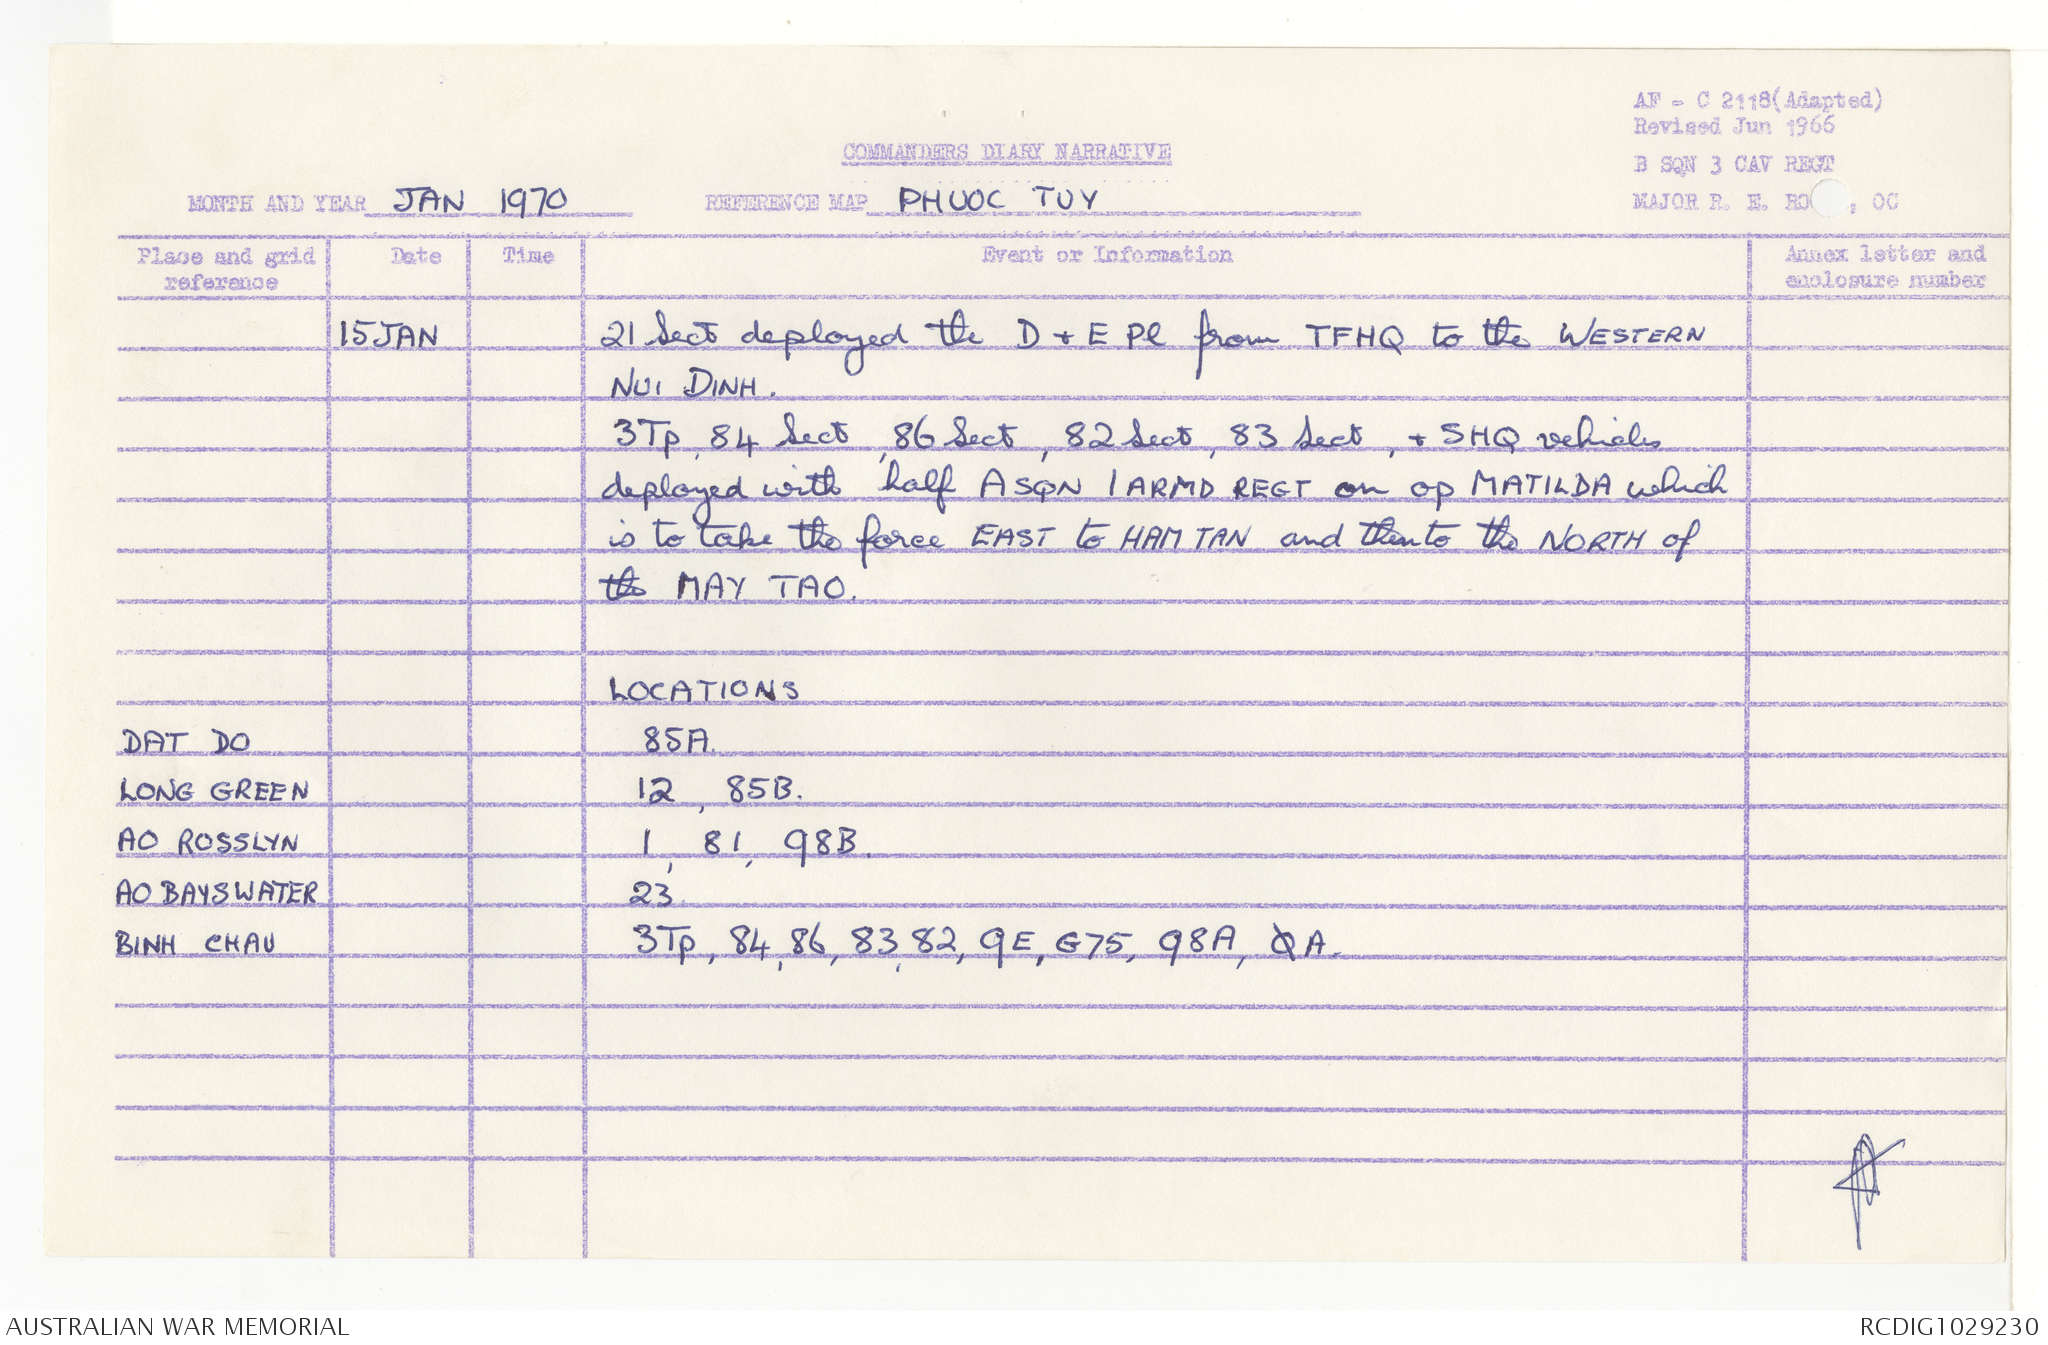 AF - C 2118(Adapted)
Revised Jun 1966
B SQN 3 CAV REGT
MAJOR R. E. RO , OC
COMMANDERS DIARY NARRATIVE
MONTH AND YEAR JAN 1970 REFERENCE MAP PHUOC TUY
Place and grid reference Date Time Event or Information Annex letter and enclosure number
15 JAN 21 Sect deployed the D + E Pl from TFHQ to the WESTERN
NUI DINH.
3Tp, 84 Sect, 86 Sect, 82 Sect, 83 Sect, + SHQ vehicles
deployed with half A SQN 1 ARMD REGT on op MATILDA which
is to take the force EAST to HAM TAN and then to the NORTH of
the MAY TAO.
LOCATIONS
DAT DO 85A.
LONG GREEN 12, 85B.
AO ROSSLYN 1, 81, 98B.
AO BAYSWATER 23.
BINH CHAU 3Tp, 84, 86, 83, 82, 9E, G75, 98A, A.
AUSTRALIAN WAR MEMORIAL RCDIG1029230